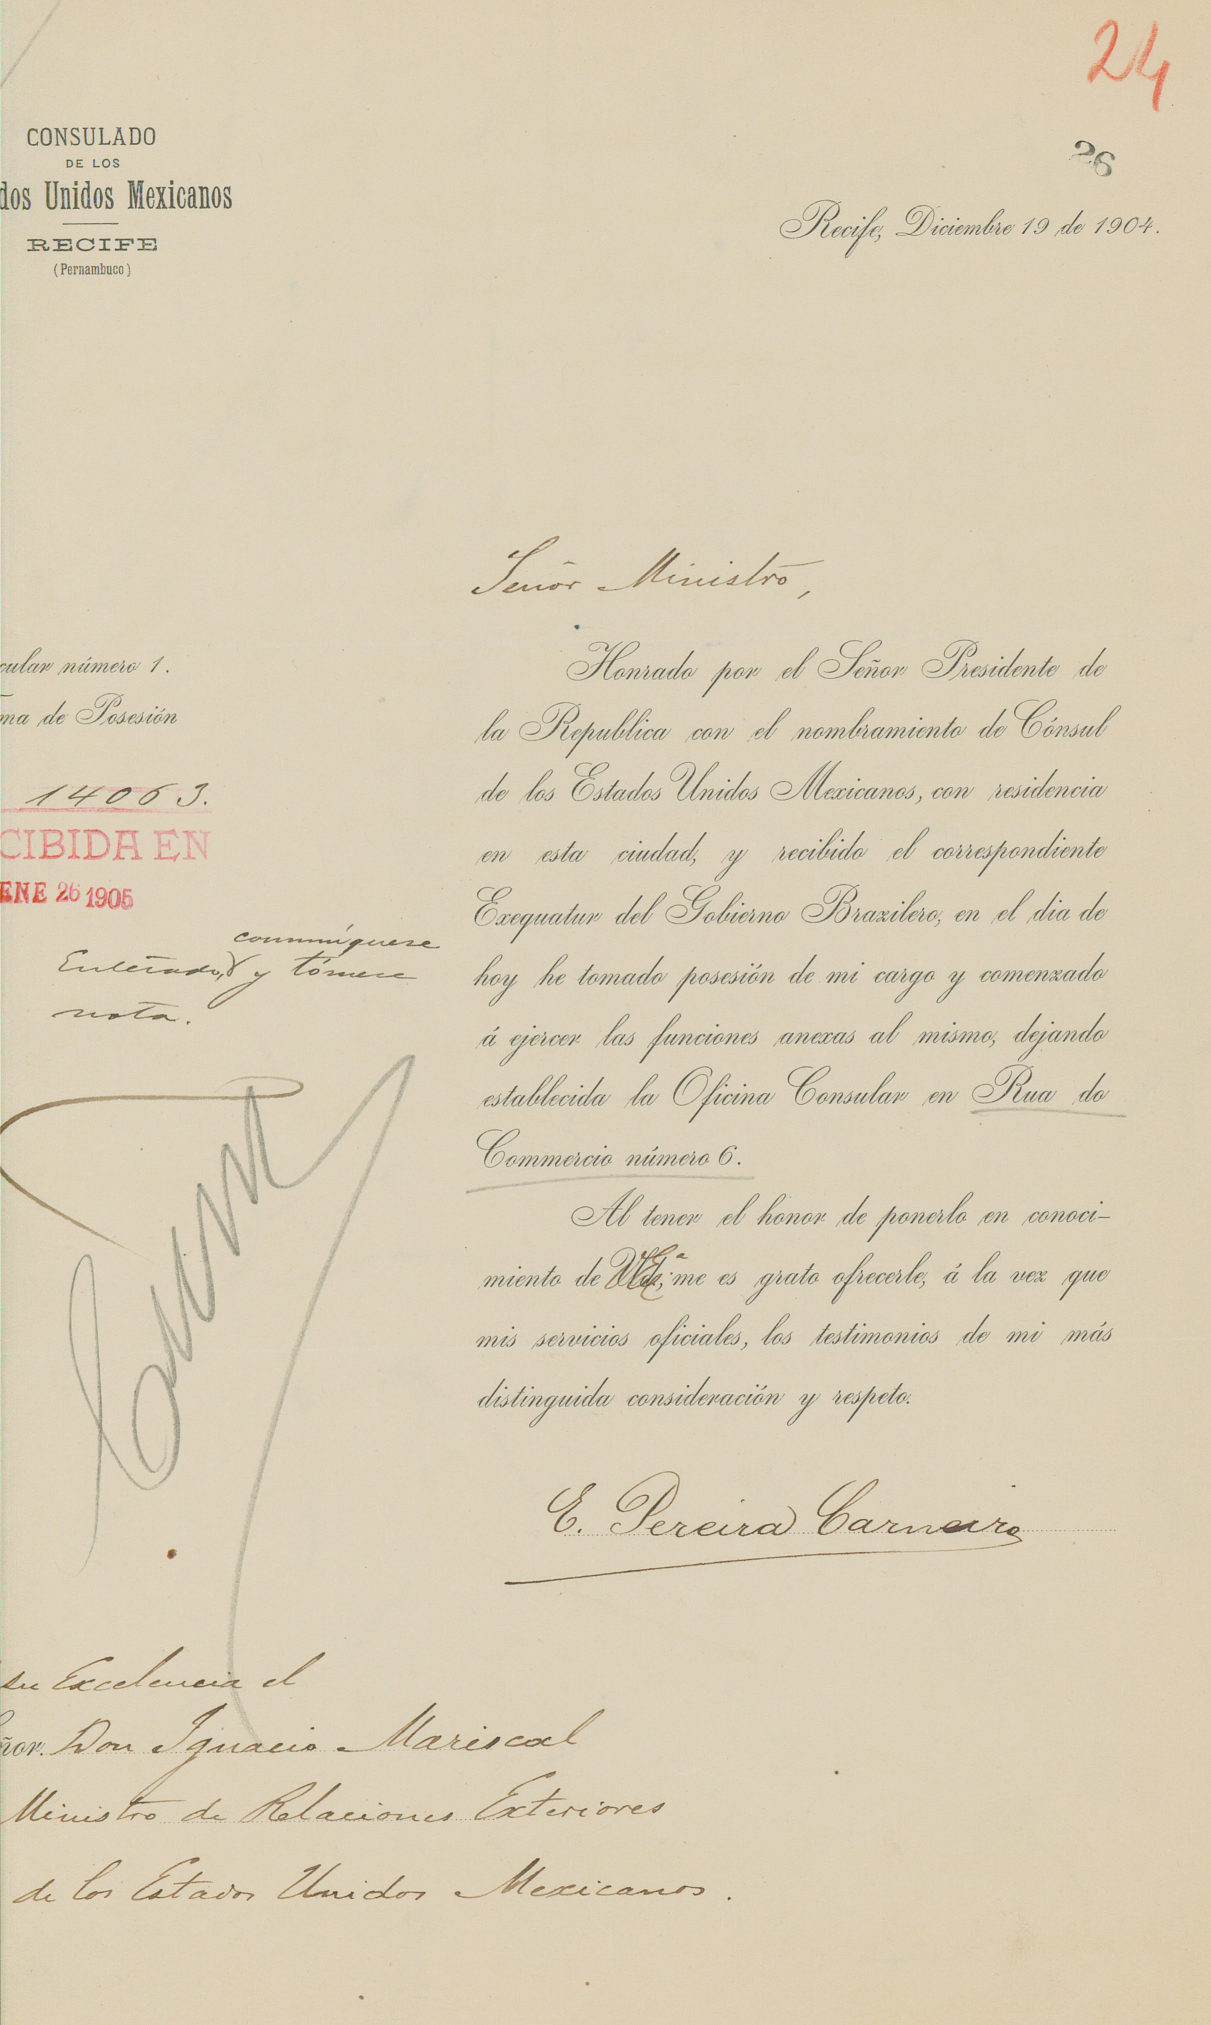 24
26
CONSULADO
DE LOS
dos Unidos Mexicanos
RECIFE
(Pernambuco)
Recife, Diciembre 19 de 1904.
Señor Ministro,
cular número 1.
ma de Posesión
14063.
CIBIDA EN
ENE 26 1905
comuníquese
Enterado, y tómese
nota.
Honrado por el Señor Presidente de
la Republica con el nombramiento de Cónsul
de los Estados Unidos Mexicanos, con residencia
en esta ciudad, y recibido el correspondiente
Exequatur del Gobierno Brazilero, en el dia de
hoy he tomado posesión de mi cargo y comenzado
á ejercer las funciones anexas al mismo, dejando
establecida la Oficina Consular en Rua do
Commercio número 6.
Al tener el honor de ponerlo en conoci-
miento de V.E.ª, me es grato ofrecerle, á la vez que
mis servicios oficiales, los testimonios de mi más
distinguida consideración y respeto.
E. Pereira Carneiro
su Excelencia el
ñor. Don Ignacio Mariscal
Ministro de Relaciones Exteriores
de los Estados Unidos Mexicanos.